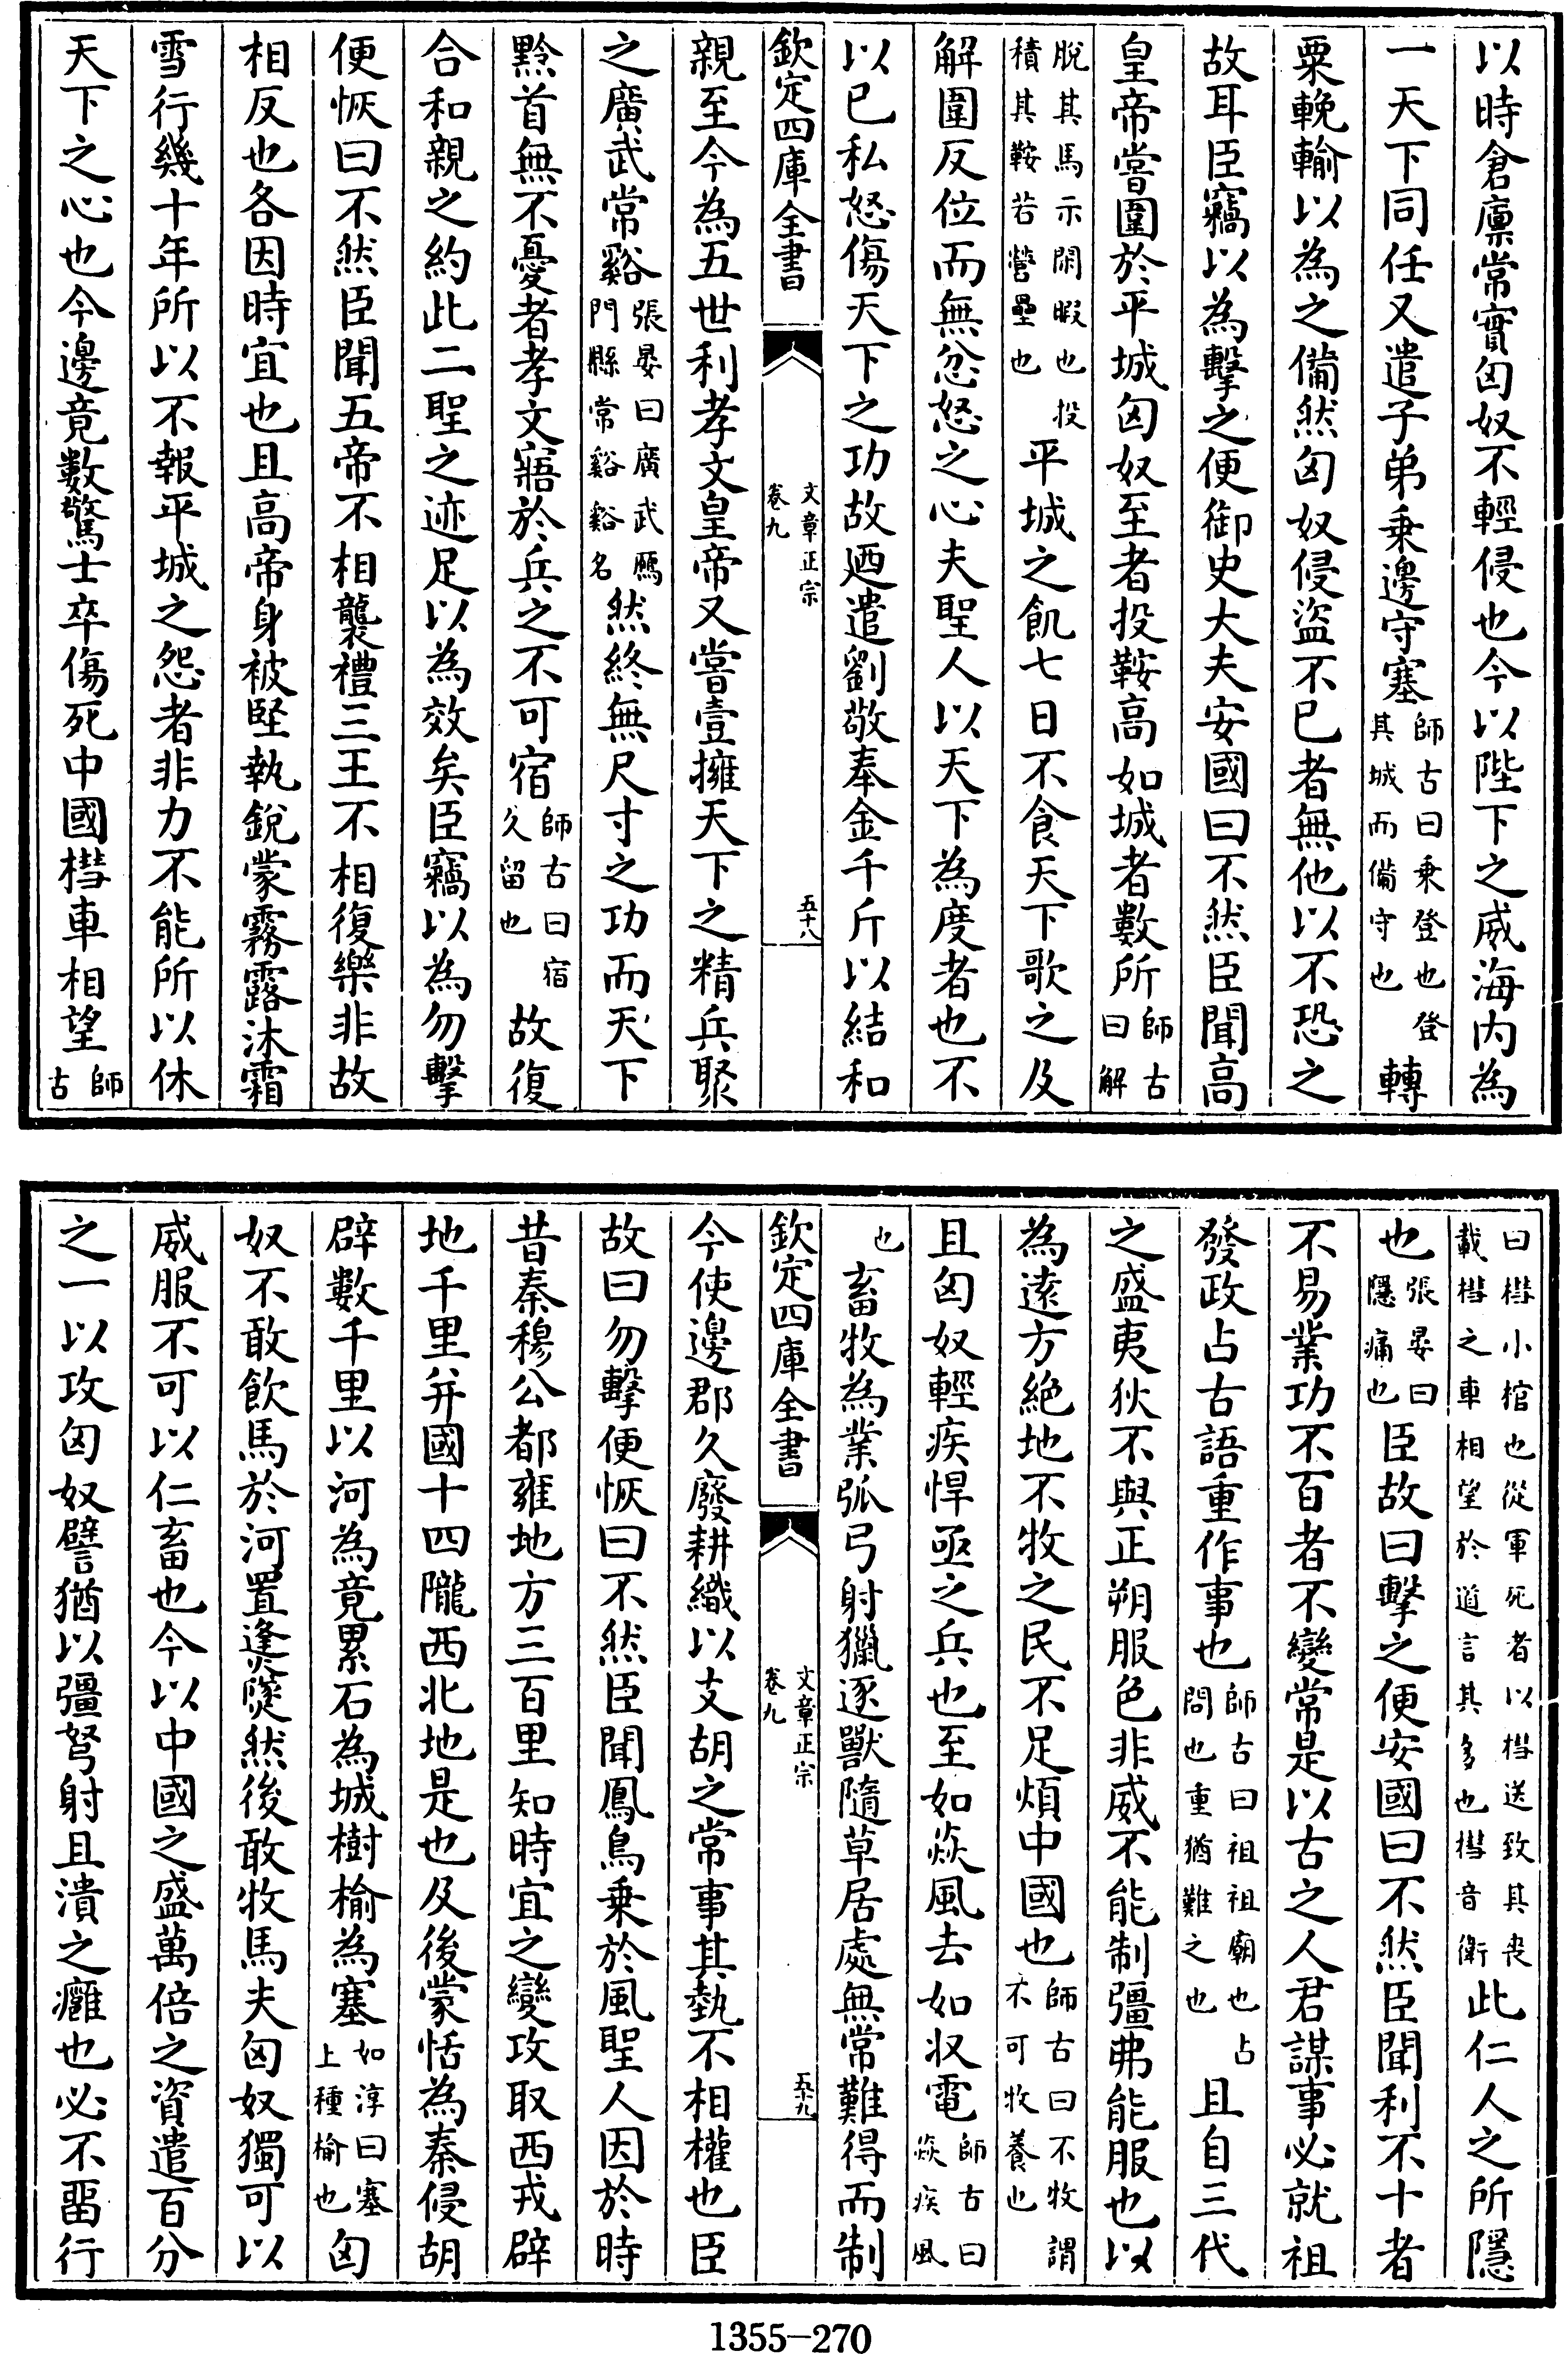 以時倉廪常實匈奴不輕侵也今以陛下之威海内為
一天下同任又遣子弟乗邊守塞師古曰乗登也登其城而備守也轉
粟輓輸以為之備然匈奴侵盜不已者無他以不恐之
故耳臣竊以為擊之便御史大夫安國曰不然臣聞高
皇帝嘗圍於平城匈奴至者投鞍高如城者數所師古曰解
脫其馬示閑暇也投積其鞍若營壘也平城之飢七日不食天下歌之及
解圍反位而無忿怒之心夫聖人以天下為度者也不
以已私怒傷天下之功故廼遣劉敬奉金千斤以結和
欽定四庫全書
文章正宗
卷九
五十八
親至今為五世利孝文皇帝又嘗壹擁天下之精兵聚
之廣武常谿張晏曰廣武鴈門縣常谿谿名然終無尺寸之功而天下
黔首無不憂者孝文寤於兵之不可宿師古曰宿久留也故復
合和親之約此二聖之迹足以為效矣臣竊以為勿擊
便恢曰不然臣聞五帝不相襲禮三王不相復樂非故
相反也各因時宜也且高帝身被堅執銳蒙霧露沐霜
雪行幾十年所以不報平城之怨者非力不能所以休
天下之心也今邊竟數驚士卒傷死中國槥車相望師古
曰槥小棺也從軍死者以槥送致其喪載槥之車相望於道言其多也槥音衛此仁人之所隱
也張晏曰隱痛也臣故曰擊之便安國曰不然臣聞利不十者
不易業功不百者不變常是以古之人君謀事必就祖
發政占古語重作事也師古曰祖祖廟也占問也重猶難之也且自三代
之盛夷狄不與正朔服色非威不能制彊弗能服也以
為逺方絶地不牧之民不足煩中國也師古曰不牧謂不可牧養也
且匈奴輕疾悍亟之兵也至如猋風去如收電師古曰猋疾風
也畜牧為業弧弓射獵逐獸隨草居處無常難得而制
欽定四庫全書
文章正宗
卷九
五十九
今使邊郡久廢耕織以支胡之常事其執不相權也臣
故曰勿擊便恢曰不然臣聞鳳鳥乗於風聖人因於時
昔秦穆公都雍地方三百里知時宜之變攻取西戎辟
地千里并國十四隴西北地是也及後蒙恬為秦侵胡
辟數千里以河為竟累石為城樹榆為塞如淳曰塞上種榆也匈
奴不敢飲馬於河置㷭㸂然後敢牧馬夫匈奴獨可以
威服不可以仁畜也今以中國之盛萬倍之資遣百分
之一以攻匈奴譬猶以彊弩射且潰之癰也必不畱行
1355-270